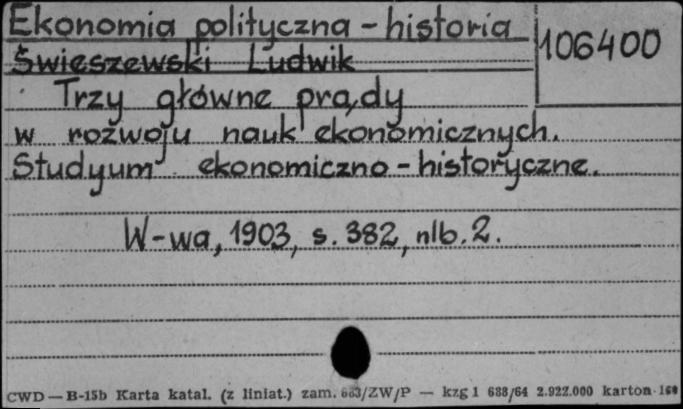 Ekonomia polityczna - historia
106400
Świeszewski Ludwik
Trzy główne prądy
w rozwoju nauk ekonomicznych.
Studyum ekonomiczno - historyczne.
W-wa, 1903, s. 382, nlb. 2.
CWD — B-15b Karta katal. (z liniat.) zam. 663/ZW/P — kzg 1 688/64 2.922.000 karton